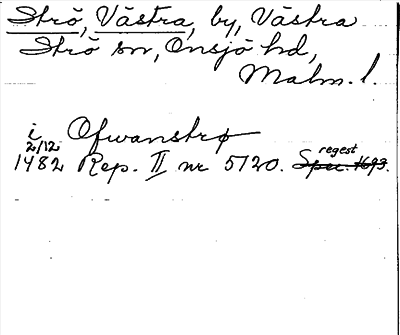 Strö, Västra, by, Västra
Strö sn, Onsjö hd,
Malm. l.
i Ofwanströ
2/12
1482 Rep. II nr 5720. Spec. 1693. regest